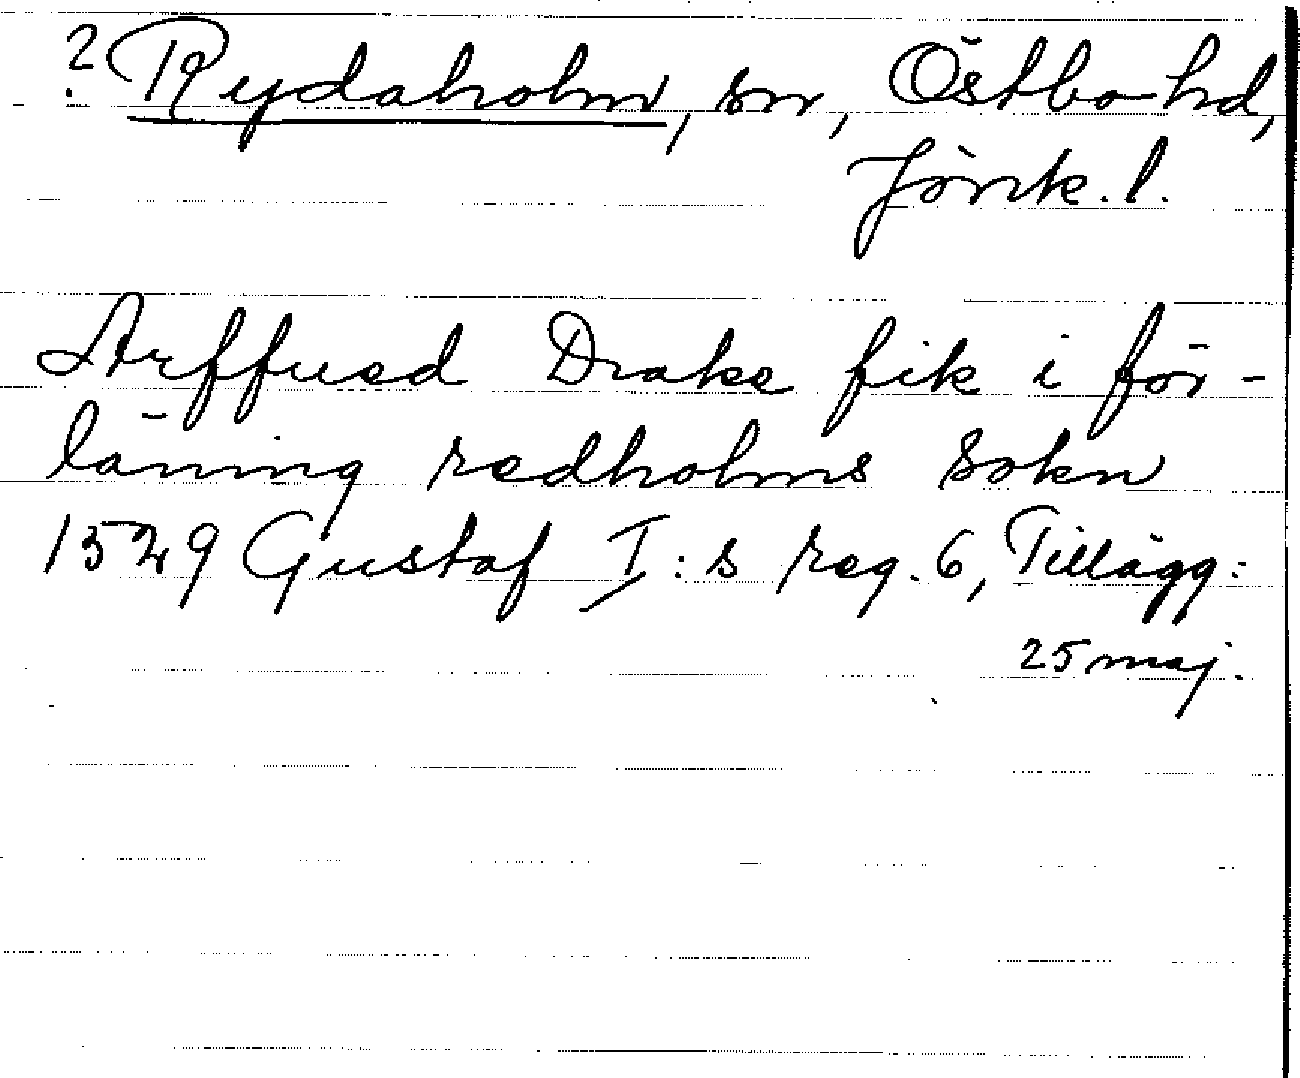 ? Rydaholm, sn, Östbo hd,
Jönk. l.
Arffued Drake fik i för-
läning redholms sokn
1529 Gustaf I:s reg. 6, Tillägg:
25 maj.